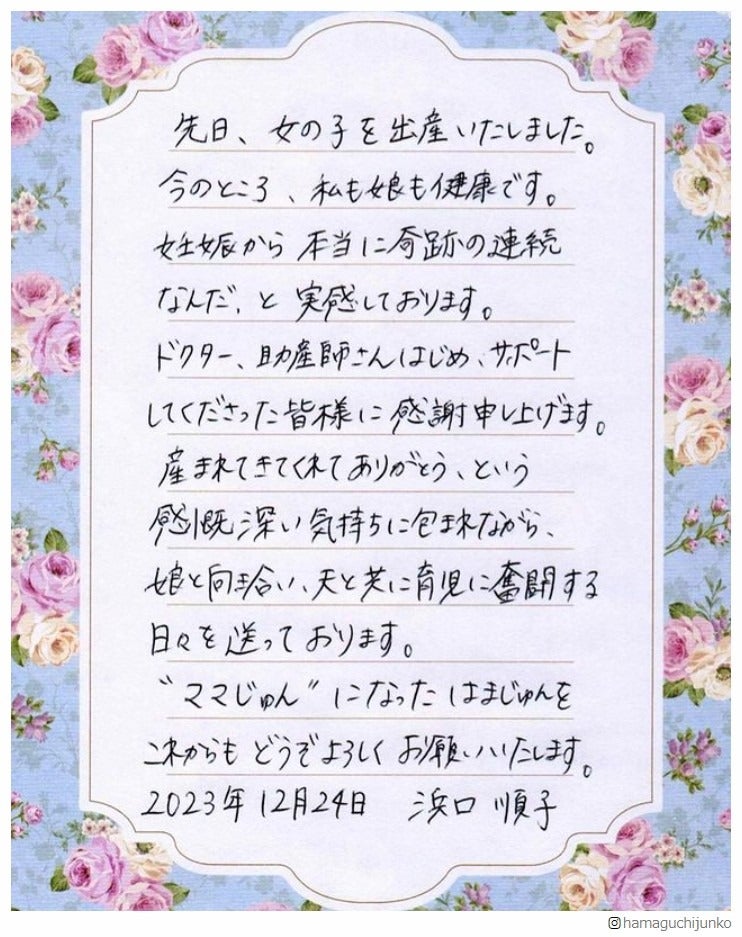 先日、女の子を出産いたしました。
今のところ、私も娘も健康です。
妊娠から 本当に奇跡の連続
なんだ、と 実感しております。
ドクター、助産師さんはじめ、サポート
してくださった皆様に感謝申し上げます。
産まれてきてくれてありがとう、という
感慨深い気持ちに包まれながら、
娘と向き合い、夫と共に育児に奮闘する
日々を送っております。
“ママじゅん”になったはまじゅんを
これからもどうぞよろしくお願いいたします。
2023年12月24日 浜口 順子
hamaguchijunko